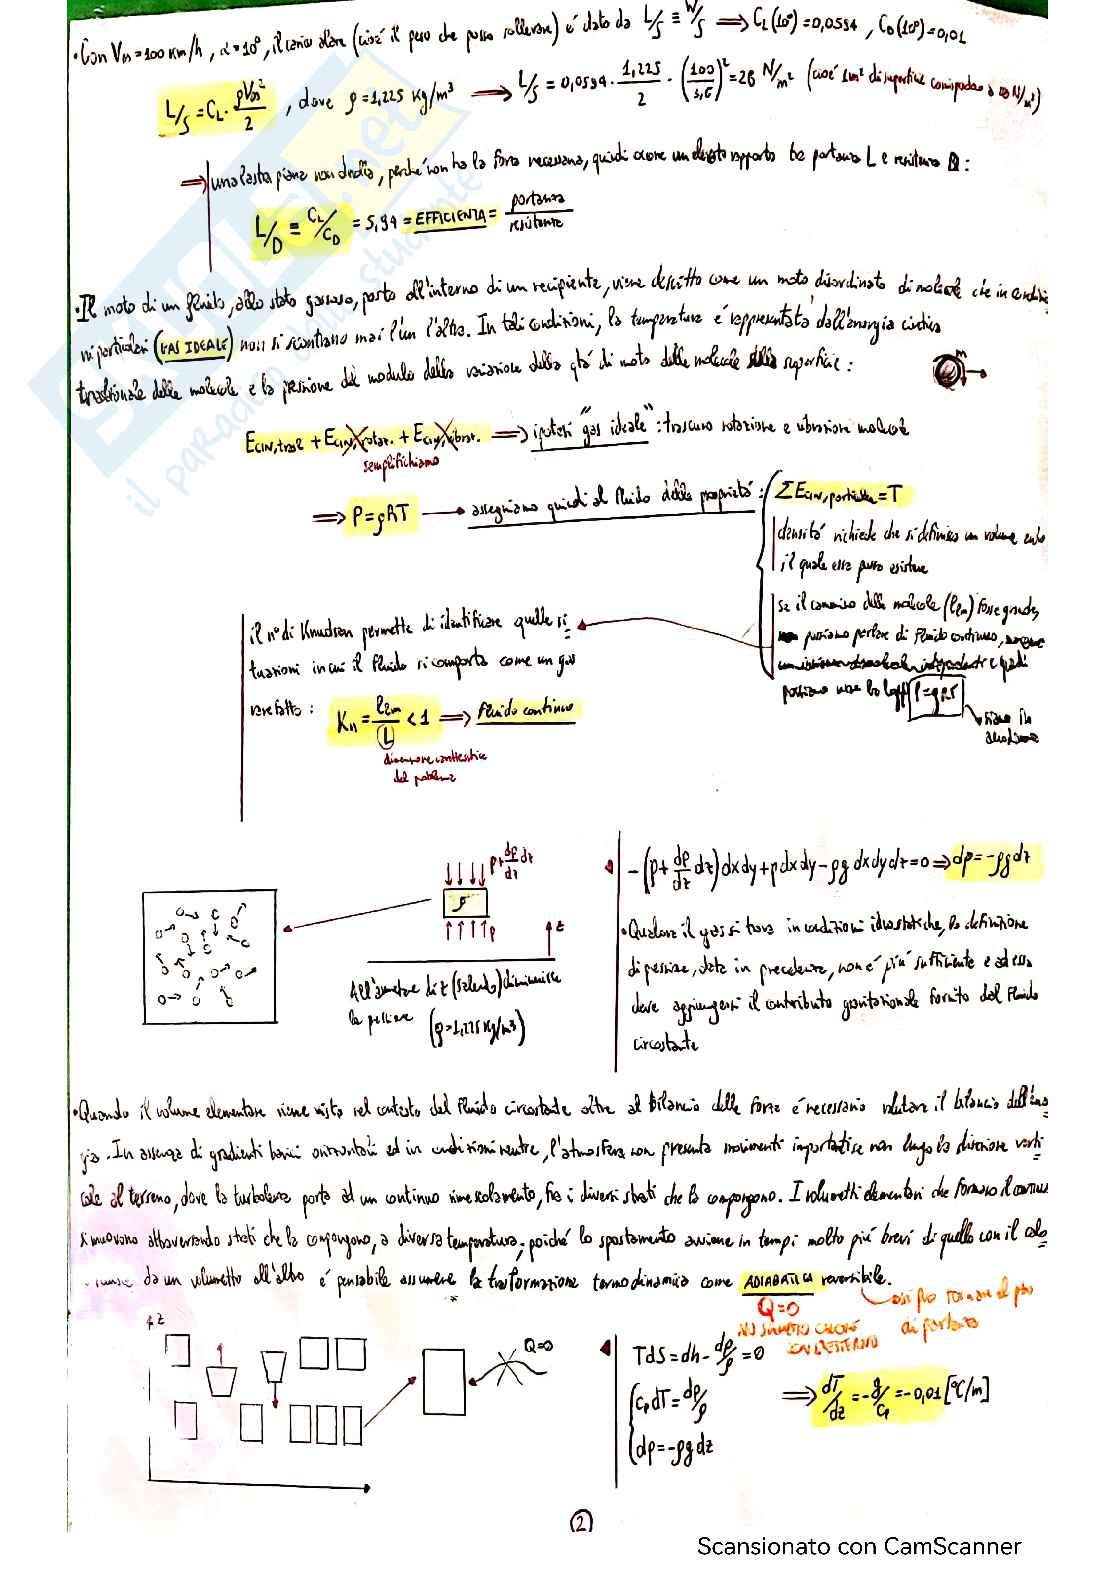 • Con V∞ = 100 Km/h, α = 10°, il carico alare (cioè il peso che posso sollevare) é dato da L/S ≡ W/S ⟹ CL(10°) = 0,0594, CD(10°) = 0,01
L/S = CL · ρV∞²/2 , dove ρ = 1,225 Kg/m³ ⟶ L/S = 0,0594 · 1,225/2 · (100/3,6)² = 28 N/m² (cioè 1m² di superficie corrisponde a N/m²)
⟹ una lastra piana non decolla, perché non ha la forza necessaria, quindi occorre un elevato rapporto tra portanza L e resistenza D:
L/D ≡ CL/CD = 5,94 = EFFICIENZA = portanza/resistenza
• Il moto di un fluido, allo stato gassoso, posto all'interno di un recipiente, viene descritto come un moto disordinato di molecole che in condizio
ni particolari (GAS IDEALE) non si scontrano mai l'un l'altra. In tali condizioni, la temperatura é rappresentata dall'energia cinetica
traslazionale delle molecole e la pressione dal modulo della variazione della qtá di moto delle molecole superficie:
m
Ecin,trasl + Ecin,rotaz. + Ecin,vibraz. ⟹ ipotesi "gas ideale": trascuro rotazione e vibrazione molecole
semplifichiamo
⟹ P = ρRT ⟶ assegniamo quindi al fluido delle proprietá:
ΣEcin,particelle = T
densitá richiede che si definisca un volume entro
il quale essa possa esistere
se il cammino delle molecole (l2m) fosse grande,
possiamo parlare di fluido continuo,
possiamo usare la legge P = ρRT
siamo in
il n° di Knudsen permette di identificare quelle si
tuazioni in cui il fluido si comporta come un gas
rarefatto: Kn = l2m/L < 1 ⟹ fluido continuo
dimensione caratteristica
del problema
p + dp/dz dz
ρ
p
z
All'aumentare di z (salendo) diminuisce
la pressione (ρ = 1,225 Kg/m³)
-(p + dp/dz dz)dxdy + pdxdy - ρg dxdydz = 0 ⟹ dp = -ρgdz
• Qualora il gas si trova in condizioni idrostatiche, la definizione
di pressione, data in precedenza, non é piú sufficiente e ad essa
deve aggiungersi il contributo gravitazionale fornito dal fluido
circostante
• Quando il volume elementare viene visto nel contesto del fluido circostante oltre al bilancio delle forze é necessario valutare il bilancio dell'ener
gia. In assenza di gradienti barici orizzontali ed in condizioni neutre, l'atmosfera non presenta movimenti importanti se non lungo la direzione verti
cale al terreno, dove la turbolenza porta ad un continuo rimescolamento, fra i diversi strati che la compongono. I volumetti elementari che formano il continuo
si muovono attraversando strati che la compongono, a diversa temperatura; poiché lo spostamento avviene in tempi molto piú brevi di quello con il calo
da un volumetto all'altro é pensabile assumere la trasformazione termodinamica come ADIABATICA reversibile.
Q=0
CON L'ESTERNO
z
Q=0
TdS = dh - dp/ρ = 0
cp dT = dp/ρ
dp = -ρgdz
⟹ dT/dz = -g/cp = -0,01 [°C/m]
2
Scansionato con CamScanner
SKUOLA.net
il paradiso dello studente